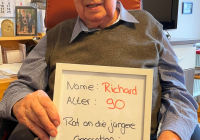 Name: Richard
Alter: 90
Rat an die jüngere
Generation: